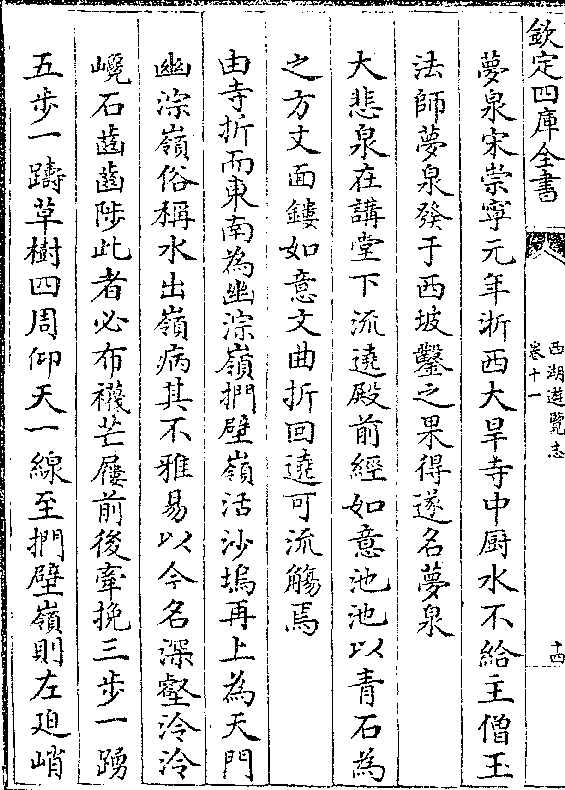 欽定四庫全書
西湖遊覽志
卷十一
十四
夢泉宋崇寧元年浙西大旱寺中厨水不給主僧玉
法師夢泉發于西坡鑿之果得遂名夢泉
大悲泉在講堂下流遶殿前經如意池池以青石為
之方丈面鏤如意文曲折回遶可流觴焉
由寺折而東南為幽淙嶺捫壁嶺活沙塢再上為天門
幽淙嶺俗稱水出嶺病其不雅易以今名深壑泠泠
巉石齒齒陟此者必布襪芒屨前後牽挽三步一踴
五步一躊草樹四周仰天一線至捫壁嶺則左廹峭